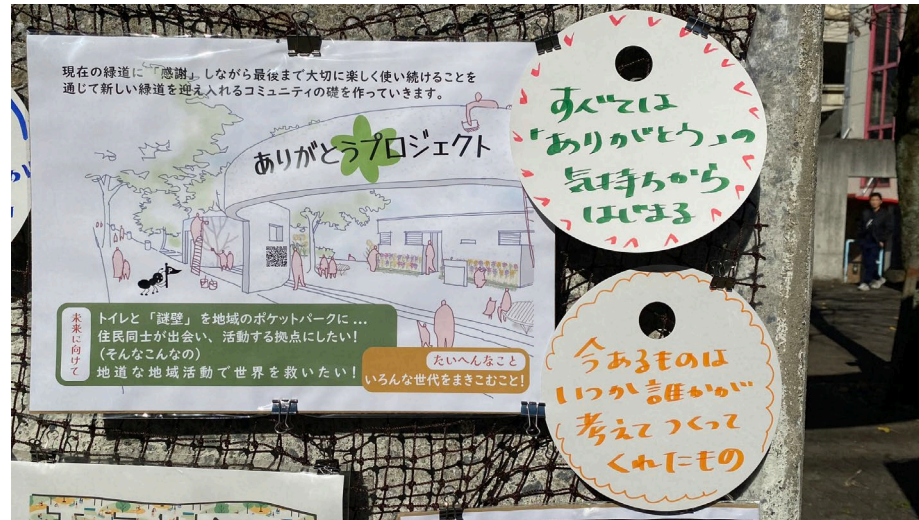 現在の緑道に「感謝」しながら最後まで大切に楽しく使い続けることを
通じて新しい緑道を迎え入れるコミュニティの礎を作っていきます。
ありがとうプロジェクト
未来に向けて
トイレと「謎壁」を地域のポケットパークに...
住民同士が出会い、活動する拠点にしたい!
(そんなこんなの)
地道な地域活動で世界を救いたい!
たいへんなこと
いろんな世代をまきこむこと!
すべては
「ありがとう」の
気持ちから
はじまる
今あるものは
いつか誰かが
考えてつくって
くれたもの